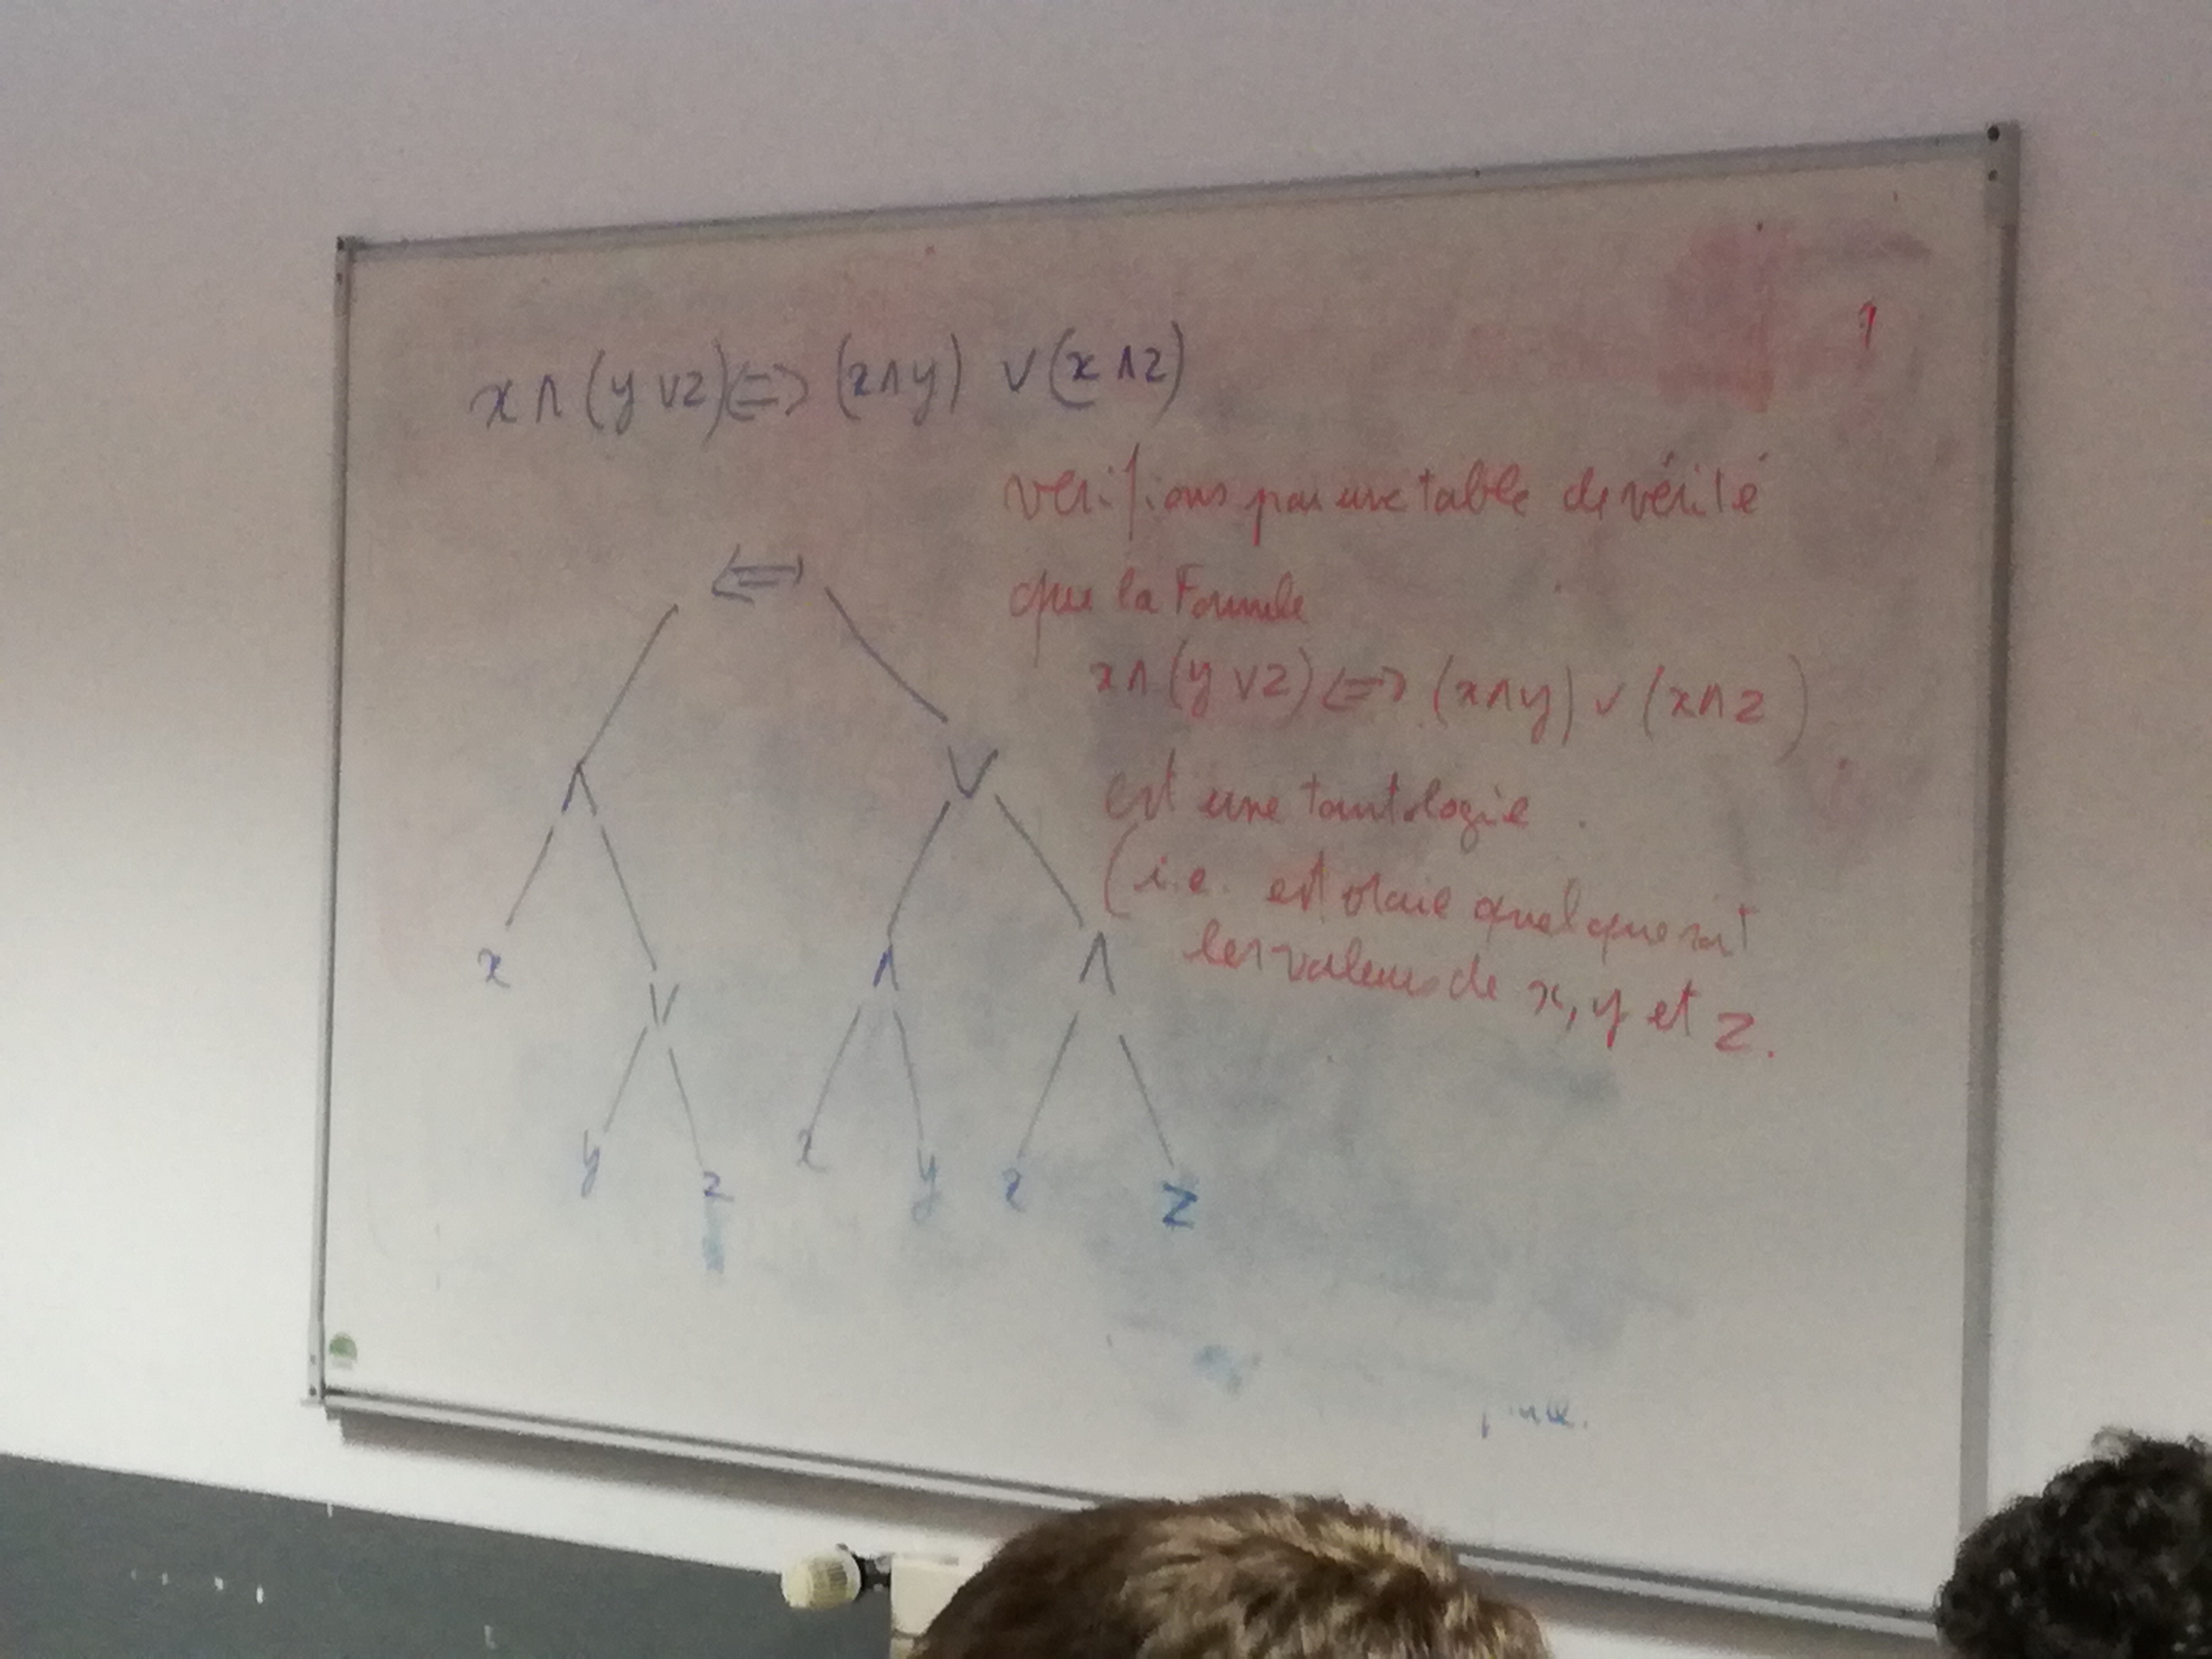 x ∧ (y ∨ z) ⇔ (x ∧ y) ∨ (x ∧ z)
1
vérifions par une table de vérité
que la Formule
x ∧ (y ∨ z) ⇔ (x ∧ y) ∨ (x ∧ z)
est une tautologie
(i.e. est vraie quelque soit
les valeurs de x, y et z.
⇔
∧ ∨
x ∨ ∧ ∧
y z x y x z